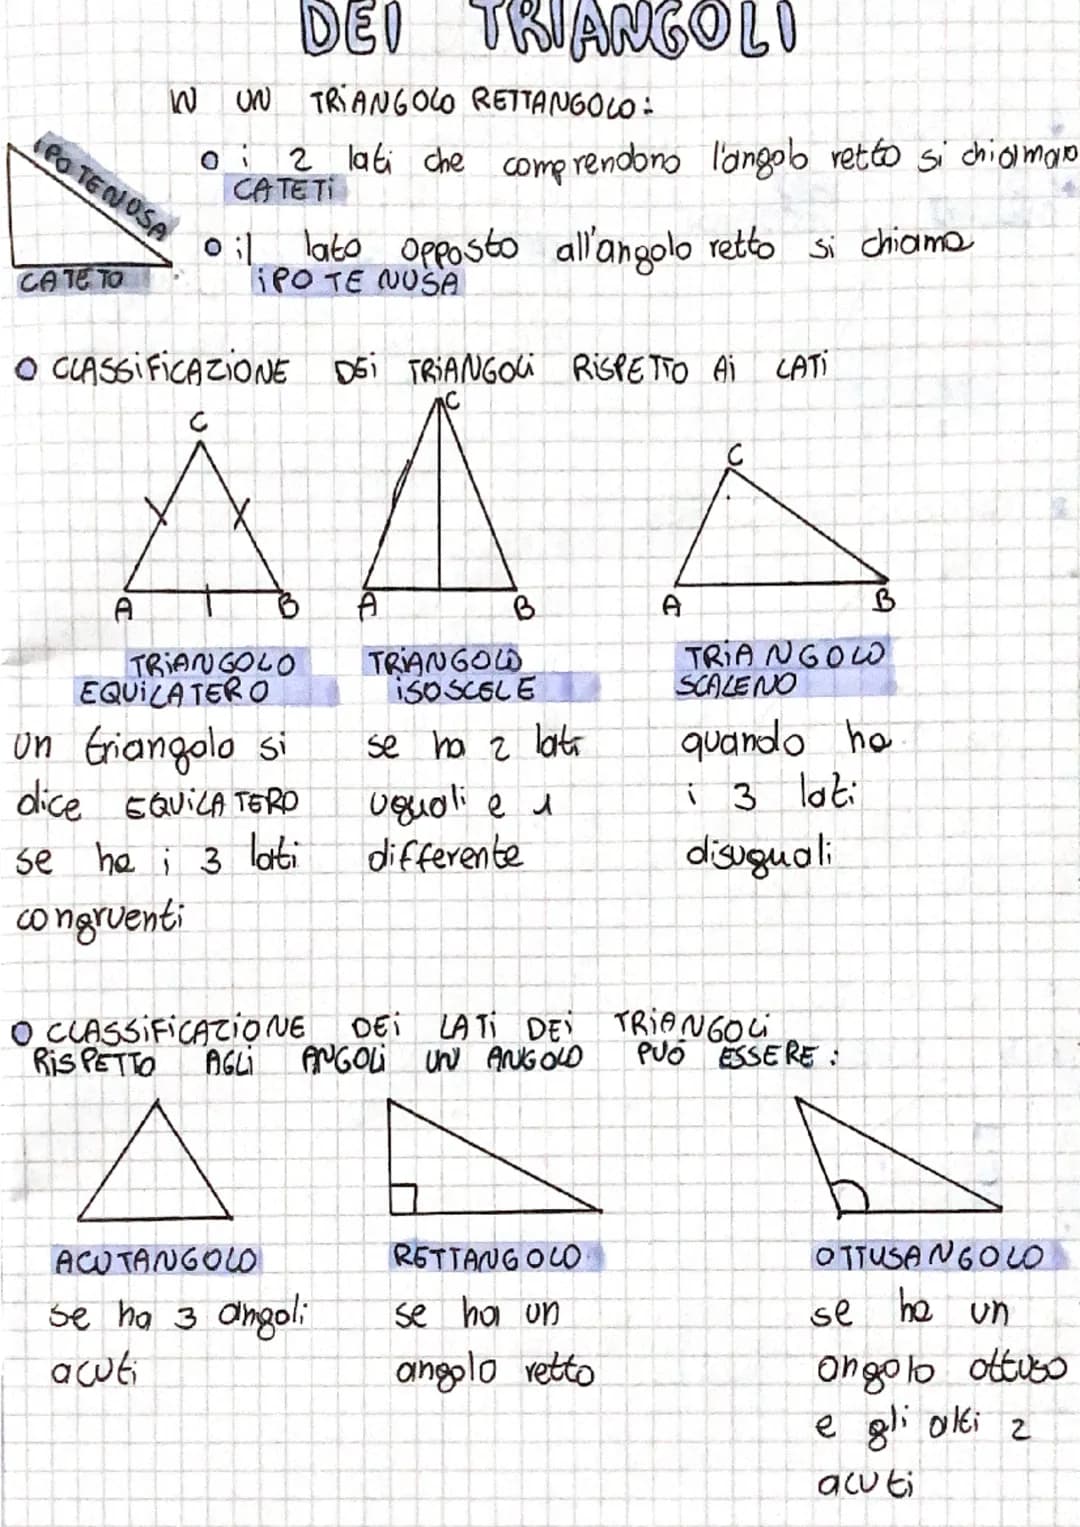 DEI TRIANGOLI
IN UN TRIANGOLO RETTANGOLO:
IPOTENUSA
CATETO
i 2 lati che comprendono l'angolo retto si chiamano
CATETI
il lato opposto all'angolo retto si chiama
IPOTENUSA
CLASSIFICAZIONE DEI TRIANGOLI RISPETTO AI LATI
C C C
A B A B A B
TRIANGOLO EQUILATERO
un triangolo si
dice EQUILATERO
se ha i 3 lati
congruenti
TRIANGOLO
ISOSCELE
se ha 2 lati
uguali e 1
differente
TRIANGOLO
SCALENO
quando ha
i 3 lati
disuguali
CLASSIFICAZIONE DEI LATI DEI TRIANGOLI
RISPETTO AGLI ANGOLI UN ANGOLO PUÓ ESSERE:
ACUTANGOLO
se ha 3 angoli
acuti
RETTANGOLO
se ha un
angolo retto
OTTUSANGOLO
se ha un
angolo ottuso
e gli altri 2
acuti